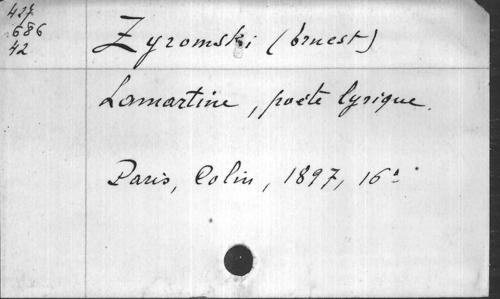 427
686
42
Zyromski (Ernest)
Lamartine, poète lyrique.
Paris, Colin, 1897, 16°